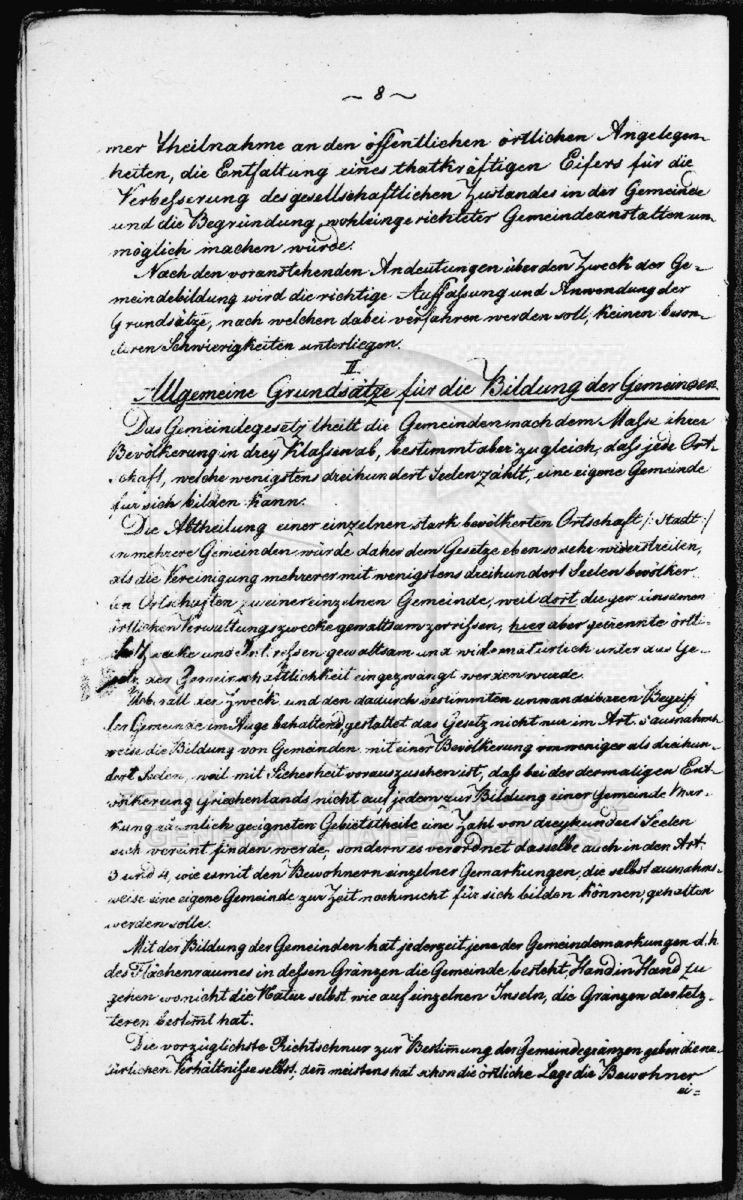 ~ 8 ~
mer Theilnahme an den öffentlichen örtlichen Angelegen-
heiten, die Entfaltung eines thatkräftigen Eifers für die
Verbesserung des gesellschaftlichen Zustandes in der Gemeinde
und die Begründung wohleingerichteter Gemeindeanstalten un-
möglich machen würde.
Nach den voranstehenden Andeutungen über den Zweck der Ge-
meindebildung wird die richtige Auffassung und Anwendung der
Grundsätze, nach welchen dabei verfahren werden soll, keinen beson-
deren Schwierigkeiten unterliegen.
II
Allgemeine Grundsätze für die Bildung der Gemeinden
Das Gemeindegesetz theilt die Gemeinden nach dem Masse ihrer
Bevölkerung in drey Klassen ab, bestimmt aber zugleich, dass jede Ort-
schaft, welche wenigstens dreihundert Seelen zählt, eine eigene Gemeinde
für sich bilden kann.
Die Abtheilung einer einzelnen stark bevölkerten Ortschaft /: Stadt :/
in mehrere Gemeinden würde daher dem Gesetze eben so sehr widerstreiten,
als die Vereinigung mehrerer mit wenigstens dreihundert Seelen bevölker
ten Ortschaften zu einer einzelnen Gemeinde, weil dort die gemeinsamen
örtlichen Verwaltungszwecke gewaltsam zerrissen, hier aber getrennte örtli-
che Zwecke und Interessen gewaltsam und widernatürlich unter das Ge-
setz der Gemeinschaftlichkeit eingezwängt werden würde.
Ueberall der Zweck und den dadurch bestimmten unwandelbaren Begriff
der Gemeinde im Auge behaltend, gestattet das Gesetz nicht nur im Art. 5 ausnahms
weise die Bildung von Gemeinden mit einer Bevölkerung von weniger als dreihun-
dert Seelen, weil mit Sicherheit vorauszusehen ist, dass bei der dermaligen Ent-
völkerung Griechenlands nicht auf jedem zur Bildung einer Gemeinde Mar-
kung räumlich geeigneten Gebietstheile eine Zahl von dreyhundert Seelen
sich vereint finden werde, sondern es verordnet dasselbe auch in den Art.
3 und 4, wie es mit den Bewohnern einzelner Gemarkungen, die selbst ausnahms-
weise eine eigene Gemeinde zur Zeit noch nicht für sich bilden können, gehalten
werden solle.
Mit der Bildung der Gemeinden hat jederzeit jene der Gemeindemarkungen d.h.
des Flächenraumes in dessen Gränzen die Gemeinde besteht, Hand in Hand zu
gehen wo nicht die Natur selbst wie auf einzelnen Inseln, die Gränzen des letz-
teren bestim̅t hat.
Die vorzüglichste Richtschnur zur Bestim̅ung der Gemeindegränzen geben die na-
türlichen Verhältnisse selbst; den̅ meistens hat schon die örtliche Lage die Bewohner
ei=
ΓΕΝΙΚΑ ΑΡΧΕΙΑ ΤΟΥ ΚΡΑΤΟΥΣ
GENERAL STATE ARCHIVES